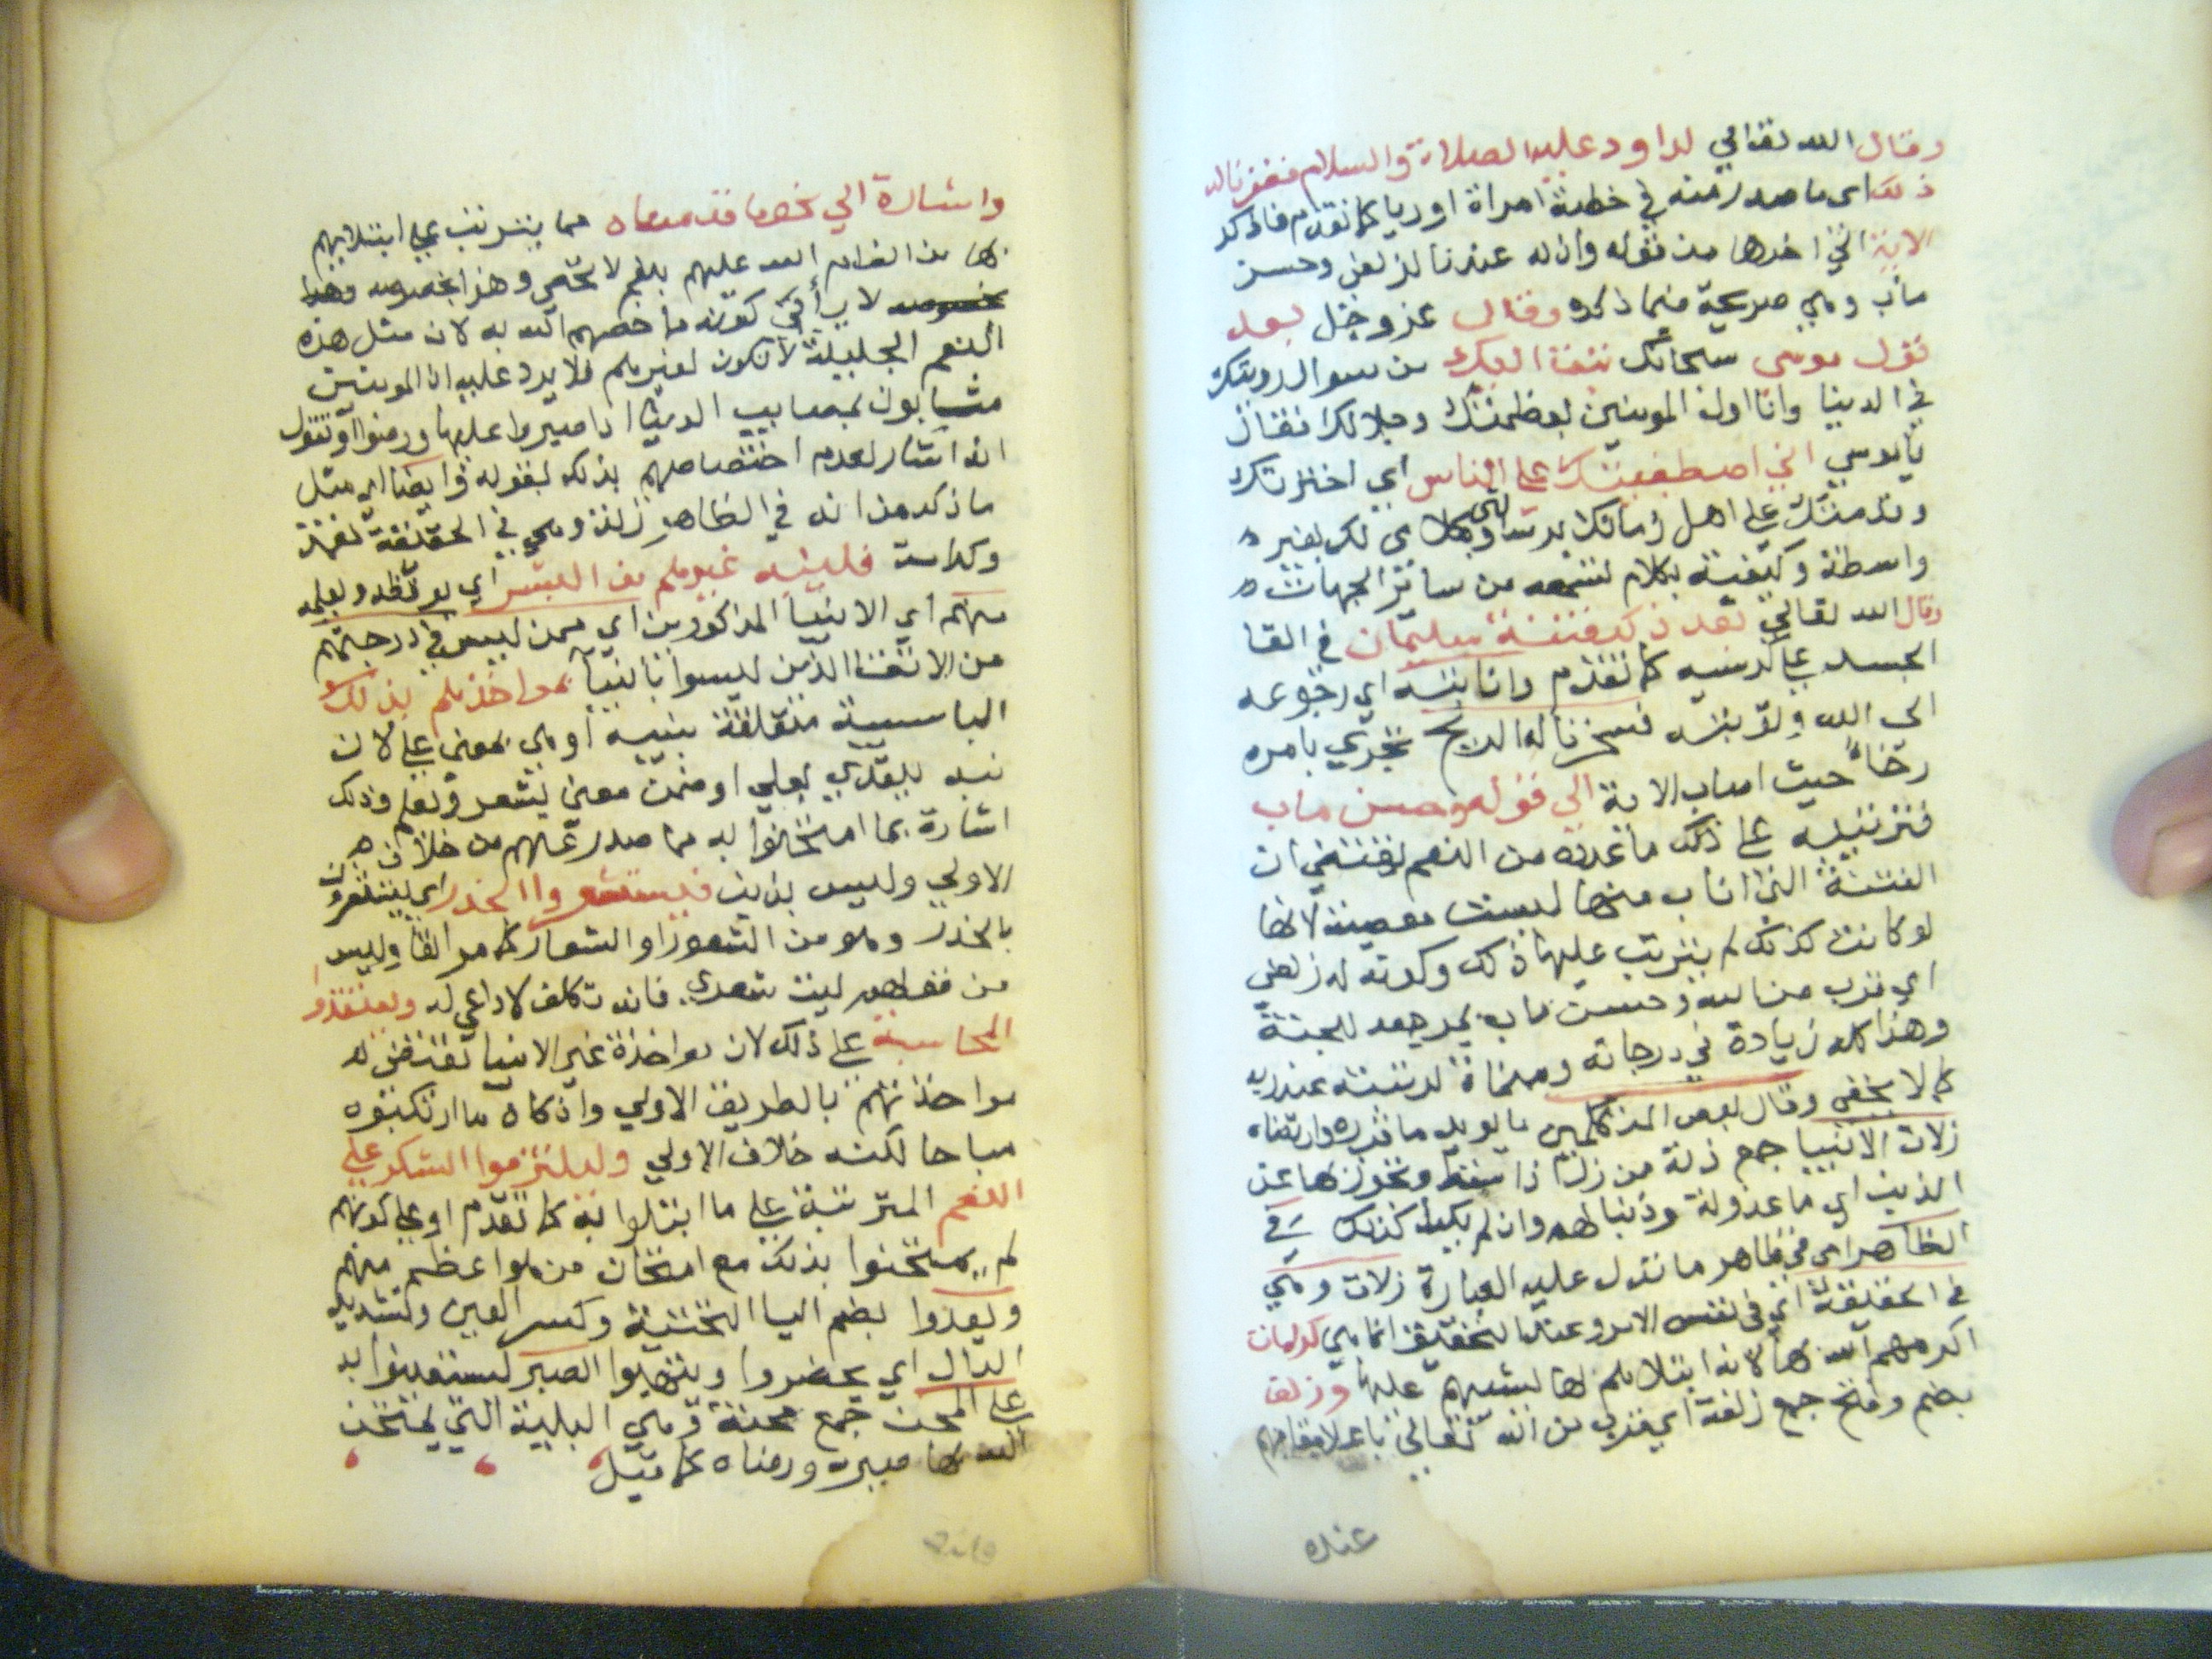 وقال الله تعالي لداود عليه الصلاة والسلام فغفرنا له
ذلك اي ما صدر منه في خطبة امراة اوريا كما تقدم فاذكر
الاية الي اخرها من قوله وان له عندنا لزلفي وحسن
ماب وهي صريحة فيما ذكره وقال عز وجل بعد
قول موسي سبحانك تبت اليك من سوال رويتك
في الدنيا وانا اول المومنين بعظمتك وجلالك فقال
ياموسي اني اصطفيتك علي الناس اي اخترتك
وقدمتك علي اهل زمانك برسالتي وبكلامي لك بغير
واسطة وكيفية بكلام تسمعه من سائر الجهات
وقال الله تعالي بعد ذكر فتنة سليمان في القا
الجسد علي كرسيه كما تقدم وانابته اي رجوعه
الي الله وتوبته فسخرنا له الريح تجري بامره
رخاءً حيث اصاب الاية الي قوله وحسن ماب
فترتيبه علي ذلك ما عدده من النعم يقتضي ان
الفتنة التي اناب منها ليست معصية لانها
لو كانت كذلك لم يترتب عليها ذلك وكونه له زلفي
اي قرب من الله وحسن ماب بمرجعه للجنة
وهذا كله زيادة في درجاته ومنافاة لرتبته عند ربه
كما لا يخفي وقال بعض المتكلمين ما يويد ما قرره وارتضاه
زلات الانبيا جمع زلة من زل اذا سقط وتجوز بها عن
الذنب اي ما عد زلة وذنبا لهم وان لم يكن كذلك في
الظاهر اي في ظاهر ما تدل عليه العبارة زلات وهي
في الحقيقة اي في نفس الامر وعند التحقيق انما هي كرامات
اكرمهم الله بها لانه ابتلاهم بها ليثيبهم عليها وزلف
بضم وفتح جمع زلفة اي قرب من الله تعالي باعلا مقامهم
عنده
واشارة الي نحو ما قدمناه مما يترتب علي ابتلايهم
بها من انعام الله عليهم بنعم لا تحصي وهذا بخصوصه وهذا
بخصوصه لا ينافي كونه ما خصهم الله به لان مثل هذه
النعم الجليلة لا تكون لغيرهم فلا يرد عليه ان المومنين
مثابون بمصايب الدنيا اذا صبروا عليها ورضوا او نقول
انه اشار لعدم اختصاصهم بذلك بقوله وايضا اي مثل
ما ذكر من انه في الظاهر زلة وهي في الحقيقة نعمة
وكرامة فلينبه غيرهم من البشر اي يوقظه ويعلمه
منهم اي الانبيا المذكورين اي ممن ليس في درجتهم
من الاتقيا الذين ليسوا بانبيا بمواخذهم بذلك و
البا سببية متعلقة بنبه او هي بمعني علي لان
نبه يتعدي بعلي او ضمن معني يشعر ويعلم وذلك
اشارة بما امتحنوا به مما صدر عنهم من خلاف
الاولي وليس بذنب فيستشعروا الحذر اي يشعرون
بالحذر وهو من الشعور او الشعار كما مر انفا وليس
من قولهم ليت شعري فانه تكلف لا داعي له ويعتقدوا
المحاسبة علي ذلك لان مواخذة غير الانبيا تقتضي له
مواخذتهم بالطريق الاولي وان كان ما ارتكبوه
مباحا لكنه خلاف الاولي وليلتزموا الشكر علي
النعم المترتبة علي ما ابتلوا به كما تقدم او علي كونهم
لم يمتحنوا بذلك مع امتحان من هو اعظم منهم
ويعدوا بضم اليا التحتية وكسر العين وتشديد
الدال اي يحضروا ويتهيوا الصبر ليستعينوا به
علي المحن جمع محنة وهي البلية التي يمتحن
الله بها صبره ورضاه كما قيل